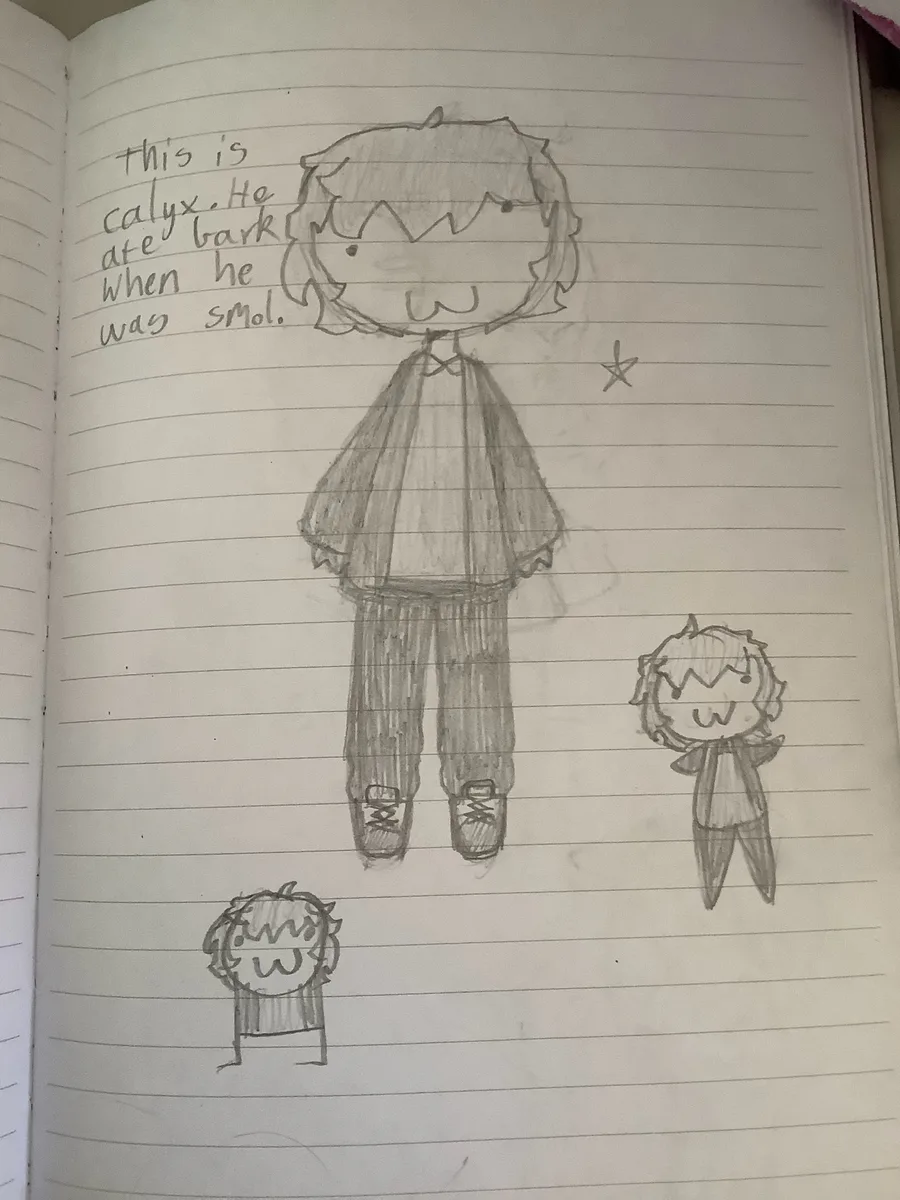 this is
calyx. He
ate bark
when he
was smol.